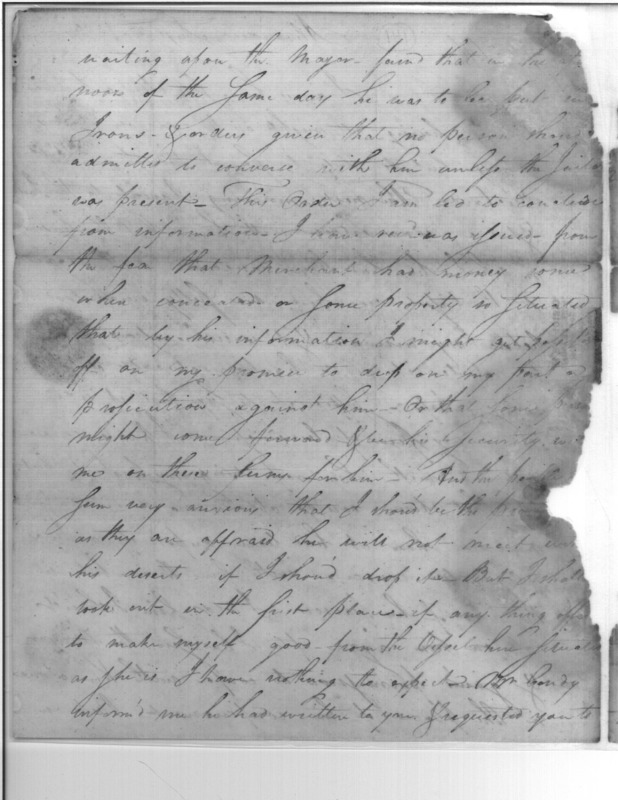 waiting upon the Mayor found that in the
noon of the same day he was to be put in
Irons - & orders given that no person should
admitted to converse with him unless the Jailo
was present - This Order I am led to conclude
from information I have rec'd was issued from
the fear that Merchant had money some
where concealed or some property so situated
that by his information I might get poss
on my promise to drop on my part a
prosecution against him - or that some
might come forward & his Security
me on these terms for him - And the
seem very anxious that I should be the
as they are affraid he will not meet
his deserts if I should drop it - But I shall
look out in the first place if any thing
to make myself good - from the Vessel here situated
as she is I have nothing to expect -
inform'd me he had written to you & requested you to